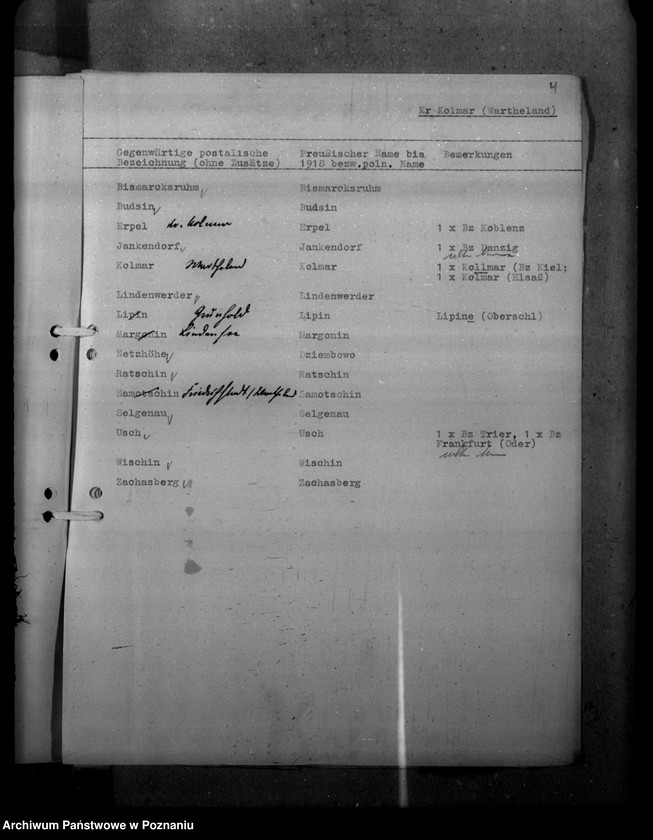 4
Kr Kolmar (Wartheland)
Gegenwärtige postalische Preußischer Name bis Bemerkungen
Bezeichnung (ohne Zusätze) 1918 bezw.poln. Name
Bismarcksruhm Bismarcksruhm
Budsin Budsin
Erpel Kr. Kolmar Erpel 1 x Bz Koblenz
Jankendorf Jankendorf 1 x Bz Danzig
Kolmar Wartheland Kolmar 1 x Kollmar (Bz Kiel;
1 x Kolmar (Elsaß)
Lindenwerder Lindenwerder
Lipin Grünhold Lipin Lipine (Oberschl)
Margonin Lindensee Margonin
Netzhöhe Dziembowo
Ratschin Ratschin
Samotschin Friedrichstadt/Wartheland Samotschin
Selgenau Selgenau
Usch Usch 1 x Bz Trier, 1 x Bz
Frankfurt (Oder)
Wischin Wischin
Zachasberg Zachasberg
Archiwum Państwowe w Poznaniu